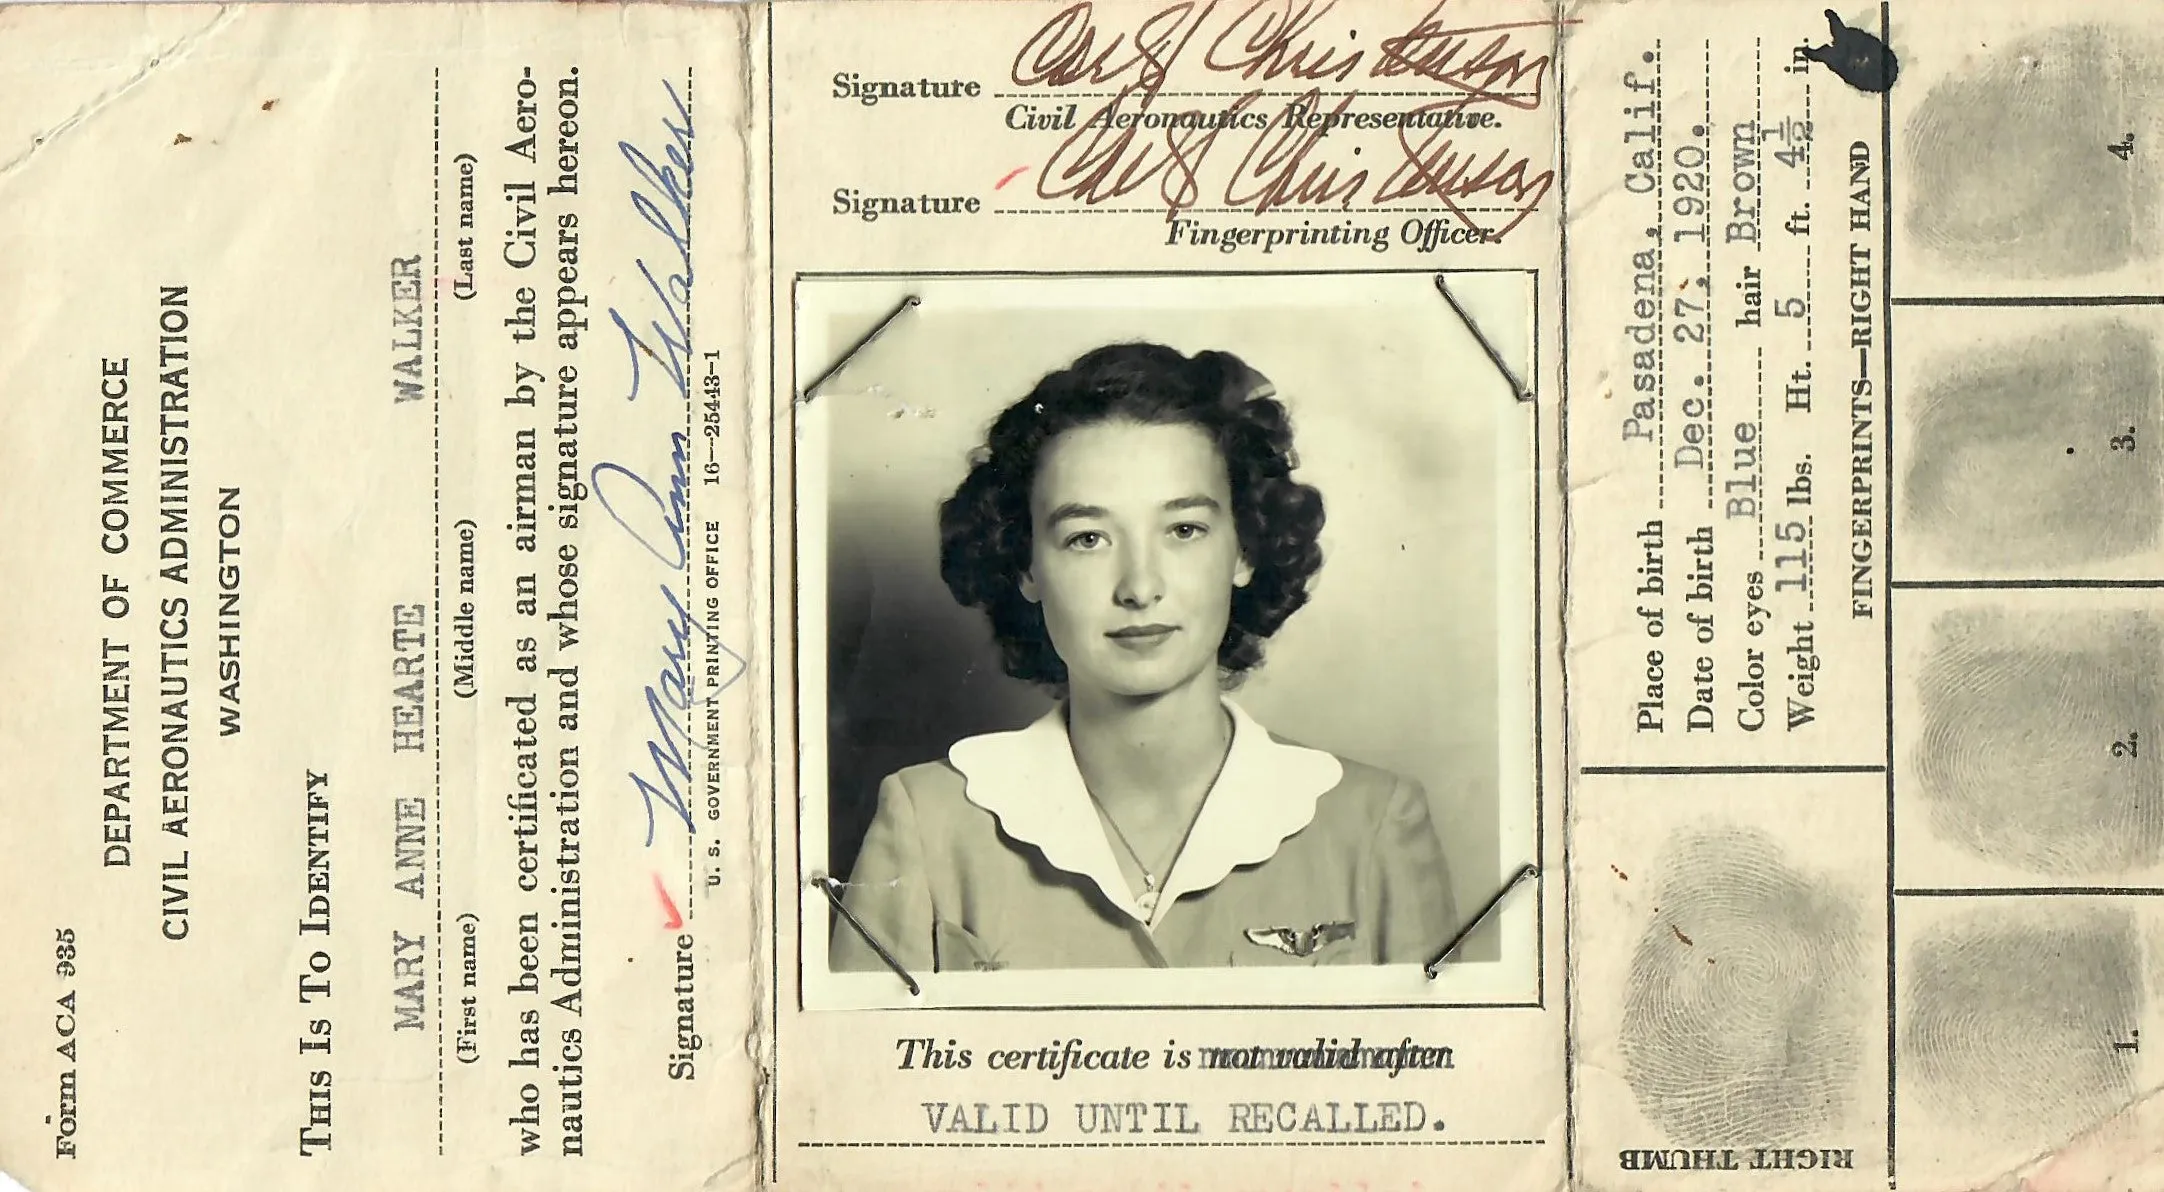 Form ACA 935
DEPARTMENT OF COMMERCE
CIVIL AERONAUTICS ADMINISTRATION
WASHINGTON
THIS IS TO IDENTIFY
MARY ANNE HEARTE WALKER
(First name) (Middle name) (Last name)
who has been certificated as an airman by the Civil Aero-
nautics Administration and whose signature appears hereon.
Signature Mary Ann Walker
U. S. GOVERNMENT PRINTING OFFICE 16—25443-1
Signature Carl Christenson
Civil Aeronautics Representative.
Signature Carl Christenson
Fingerprinting Officer.
This certificate is not valid after
VALID UNTIL RECALLED.
Place of birth Pasadena, Calif.
Date of birth Dec. 27, 1920.
Color eyes Blue hair Brown
Weight 115 lbs. Ht. 5 ft. 4½ in.
FINGERPRINTS—RIGHT HAND
RIGHT THUMB
1.
2.
3.
4.